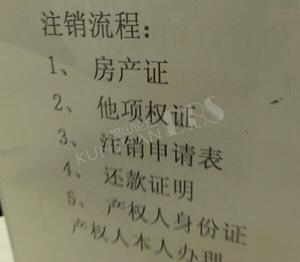 注销流程：
1、房产证
2、他项权证
3、注销申请表
4、还款证明
5、产权人身份证
产权人本人办理